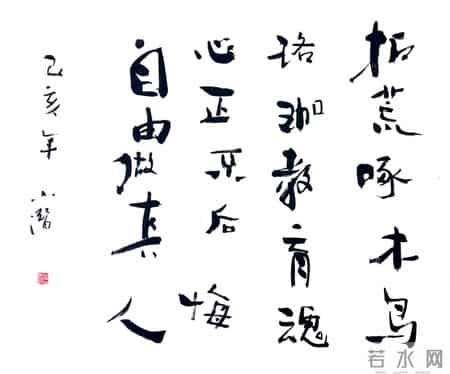 拓荒啄木鸟
珞珈教育魂
心正不后悔
自由做真人
己亥年 小潜
若水网